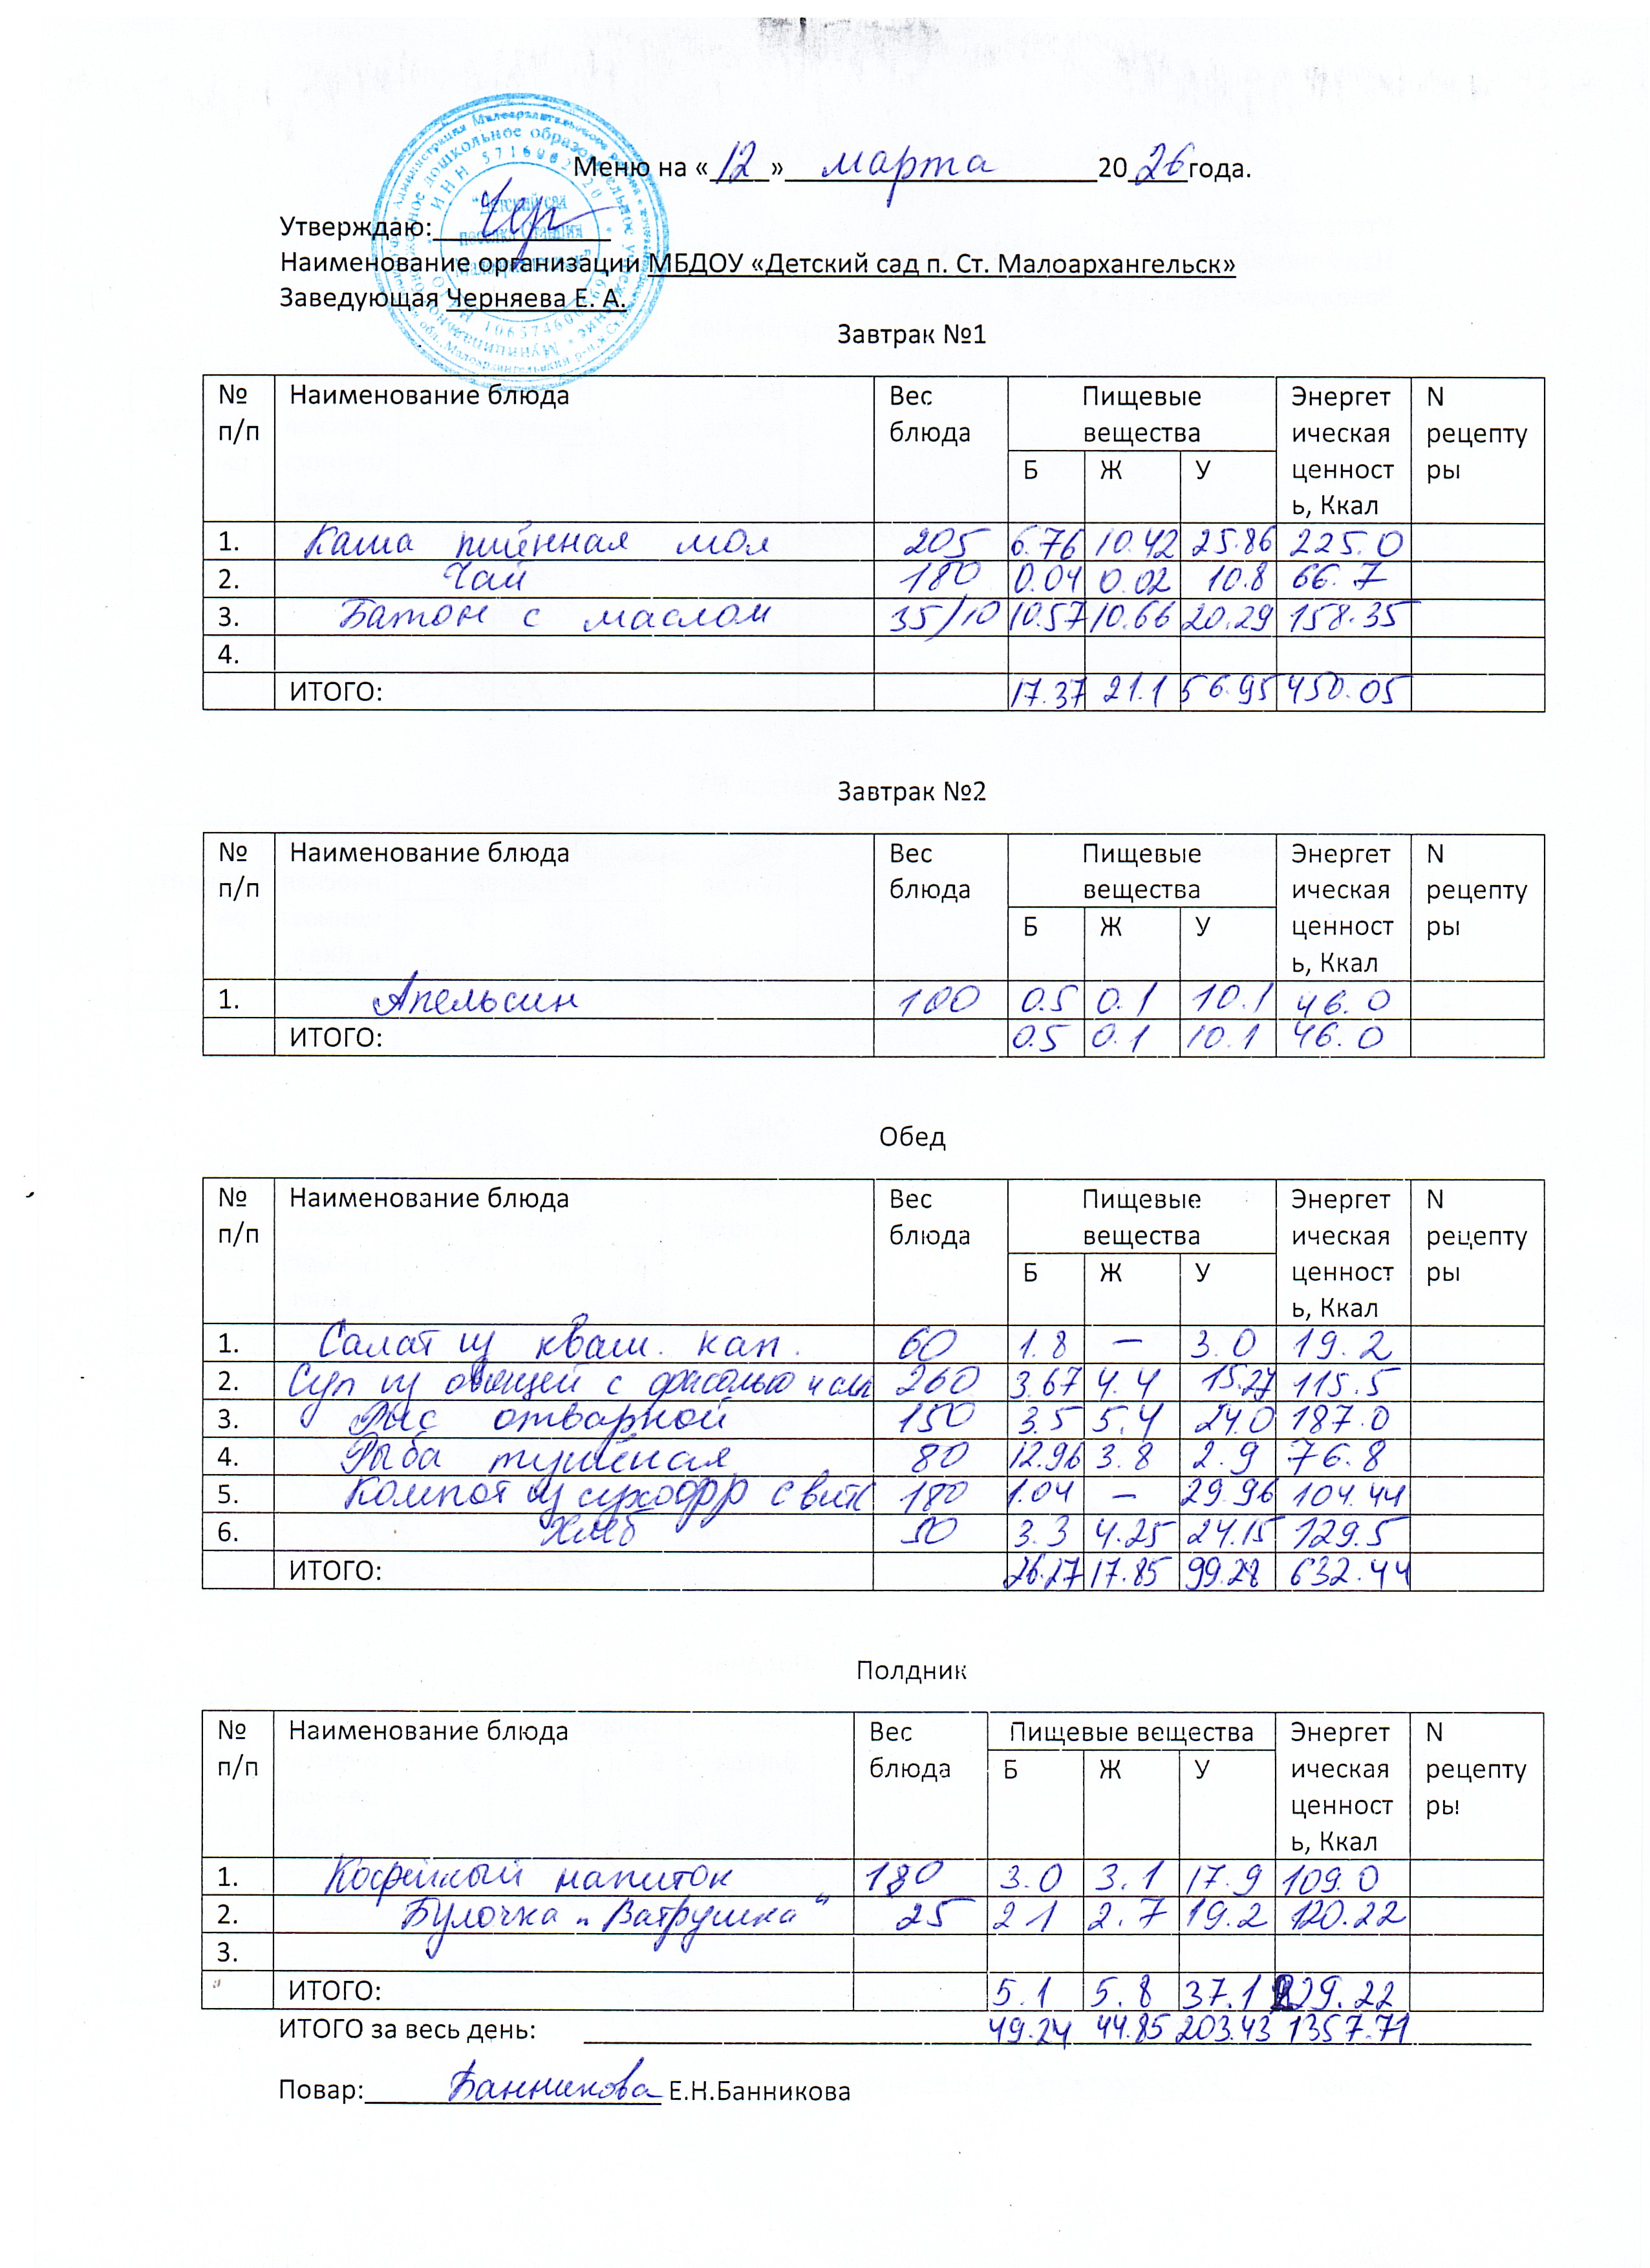 Меню на «12» марта 2026 года.
Утверждаю:
Наименование организации МБДОУ «Детский сад п. Ст. Малоархангельск»
Заведующая Черняева Е. А.
Завтрак №1
№ п/п Наименование блюда Вес блюда Пищевые вещества Б Ж У Энергетическая ценность, Ккал N рецептуры
1. Каша пшённая мол 205 6.76 10.42 25.86 225.0
2. Чай 180 0.04 0.02 10.8 66.7
3. Батон с маслом 35/10 10.57 10.66 20.29 158.35
4.
ИТОГО: 17.37 21.1 56.95 450.05
Завтрак №2
№ п/п Наименование блюда Вес блюда Пищевые вещества Б Ж У Энергетическая ценность, Ккал N рецептуры
1. Апельсин 100 0.5 0.1 10.1 46.0
ИТОГО: 0.5 0.1 10.1 46.0
Обед
№ п/п Наименование блюда Вес блюда Пищевые вещества Б Ж У Энергетическая ценность, Ккал N рецептуры
1. Салат из кваш. кап. 60 1.8 — 3.0 19.2
2. Суп из овощей с фасолью и см 260 3.67 4.4 15.27 115.5
3. Рис отварной 150 3.5 5.4 24.0 187.0
4. Рыба тушёная 80 12.96 3.8 2.9 76.8
5. Компот из сухофр с вит С 180 1.04 — 29.96 104.44
6. Хлеб 50 3.3 4.25 24.15 129.5
ИТОГО: 26.27 17.85 99.28 632.44
Полдник
№ п/п Наименование блюда Вес блюда Пищевые вещества Б Ж У Энергетическая ценность, Ккал N рецептуры
1. Кофейный напиток 180 3.0 3.1 17.9 109.0
2. Булочка „Ватрушка" 25 2 1 2.7 19.2 120.22
3.
ИТОГО: 5.1 5.8 37.1 229.22
ИТОГО за весь день: 49.24 44.85 203.43 1357.71
Повар: Банникова Е.Н.Банникова